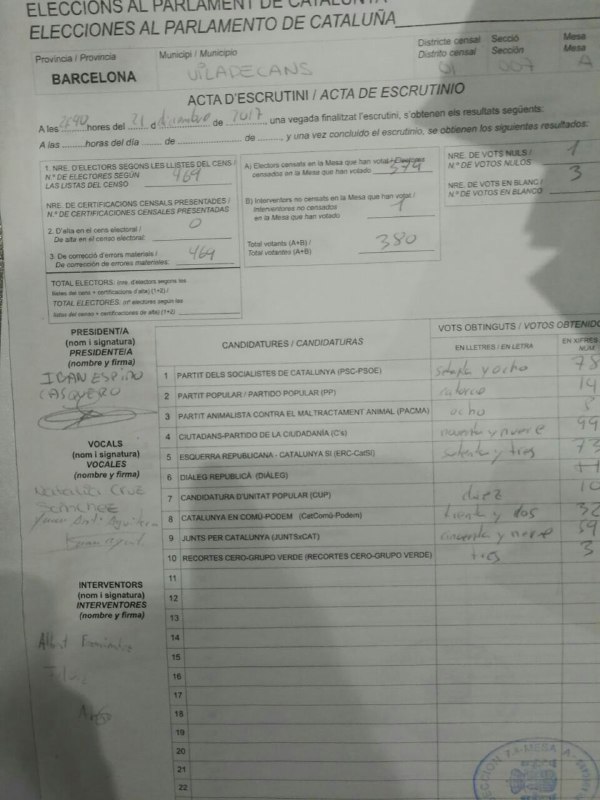 ELECCIONS AL PARLAMENT DE CATALUNYA
ELECCIONES AL PARLAMENTO DE CATALUÑA
Provincia / Provincia
BARCELONA
Municipi / Municipio
VILADECANS
Districte censal
Distrito censal
01
Secció
Sección
007
Mesa
Mesa
A
ACTA D'ESCRUTINI / ACTA DE ESCRUTINIO
A les hores del 21 d diciembre de 2017, una vegada finalitzat l'escrutini, s'obtenen els resultats següents:
A las hores del día de de y una vez concluido el escrutinio, se obtienen los siguientes resultados:
1. NRE. D'ELECTORS SEGONS LES LLISTES DEL CENS /
N.º DE ELECTORES SEGÚN
LAS LISTAS DEL CENSO 469
NRE. DE CERTIFICACIONS CENSALS PRESENTADES /
N.º DE CERTIFICACIONES CENSALES PRESENTADAS
2. D'alta en el cens electoral /
De alta en el censo electoral: 0
3. De correcció d'errores materials /
De corrección de errores materiales: 469
TOTAL ELECTORS: (nre. d'electors segons les
llistes del cens + certificacions d'alta) (1+2) /
TOTAL ELECTORES: (nº electores según las
listas del censo + certificaciones de alta) (1+2)
A) Electors censats en la Mesa que han votat / Electores
censados en la Mesa que han votado 379
B) Interventors no censats en la Mesa que han votat /
Interventores no censados
en la Mesa que han votado 1
Total votants (A+B) /
Total votantes (A+B) 380
NRE. DE VOTS NULS /
N.º DE VOTOS NULOS 1
NRE. DE VOTS EN BLANC /
N.º DE VOTOS EN BLANCO 3
PRESIDENT/A
(nom i signatura)
PRESIDENTE/A
(nombre y firma)
IBAN ESPIÑO
CASQUERO
VOCALS
(nom i signatura)
VOCALES
(nombre y firma)
Natalia Cruz
Sanchez
INTERVENTORS
(nom i signatura)
INTERVENTORES
(nombre y firma)
Albert
CANDIDATURES / CANDIDATURAS
VOTS OBTINGUTS / VOTOS OBTENIDO
EN LLETRES / EN LETRA
EN XIFRES
NÚM.
1 PARTIT DELS SOCIALISTES DE CATALUNYA (PSC-PSOE) setenta y ocho 78
2 PARTIT POPULAR / PARTIDO POPULAR (PP) catorce 14
3 PARTIT ANIMALISTA CONTRA EL MALTRACTAMENT ANIMAL (PACMA) ocho 8
4 CIUTADANS-PARTIDO DE LA CIUDADANÍA (C's) noventa y nueve 99
5 ESQUERRA REPUBLICANA - CATALUNYA SÍ (ERC-CatSí) setenta y tres 73
6 DIÀLEG REPUBLICÀ (DIÀLEG)
7 CANDIDATURA D'UNITAT POPULAR (CUP) diez 10
8 CATALUNYA EN COMÚ-PODEM (CatComú-Podem) treinta y dos 32
9 JUNTS PER CATALUNYA (JUNTSxCAT) cincuenta y nueve 59
10 RECORTES CERO-GRUPO VERDE (RECORTES CERO-GRUPO VERDE) tres 3
11
12
13
14
15
16
17
18
19
20
21
22